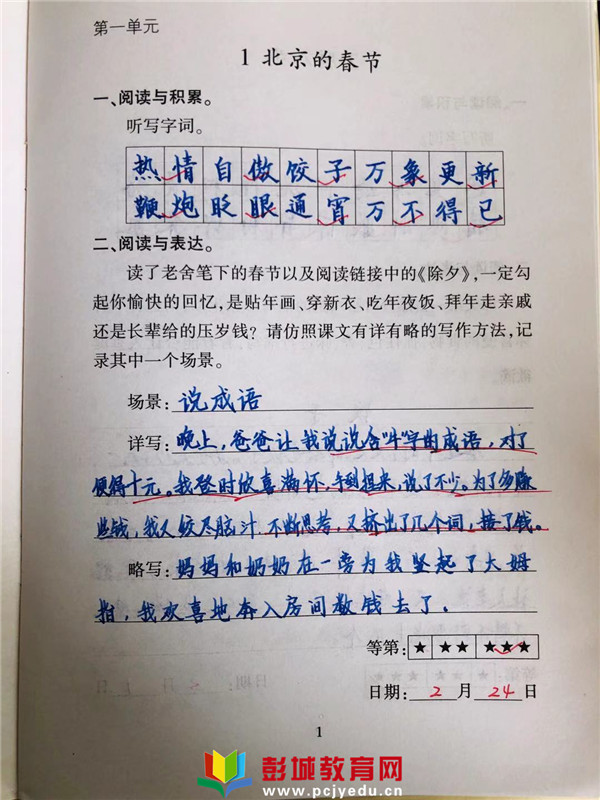 第一单元
1 北京的春节
一、阅读与积累。
听写字词。
热情自傲饺子万象更新
鞭炮眨眼通宵万不得已
二、阅读与表达。
读了老舍笔下的春节以及阅读链接中的《除夕》,一定勾
起你愉快的回忆,是贴年画、穿新衣、吃年夜饭、拜年走亲戚
还是长辈给的压岁钱?请仿照课文有详有略的写作方法,记
录其中一个场景。
场景:说成语
详写:晚上,爸爸让我说说含"牛"字的成语,对了
便得十元。我登时欣喜满怀,手到擒来,说了不少。为了多赚
些钱,我又绞尽脑汁,不断思考,又挤出了几个词,接了钱。
略写:妈妈和奶奶在一旁为我竖起了大姆
指,我欢喜地奔入房间数钱去了。
等第:★ ★★ ★★★
日期:2月24日
1
彭城教育网
www.pcjyedu.cn